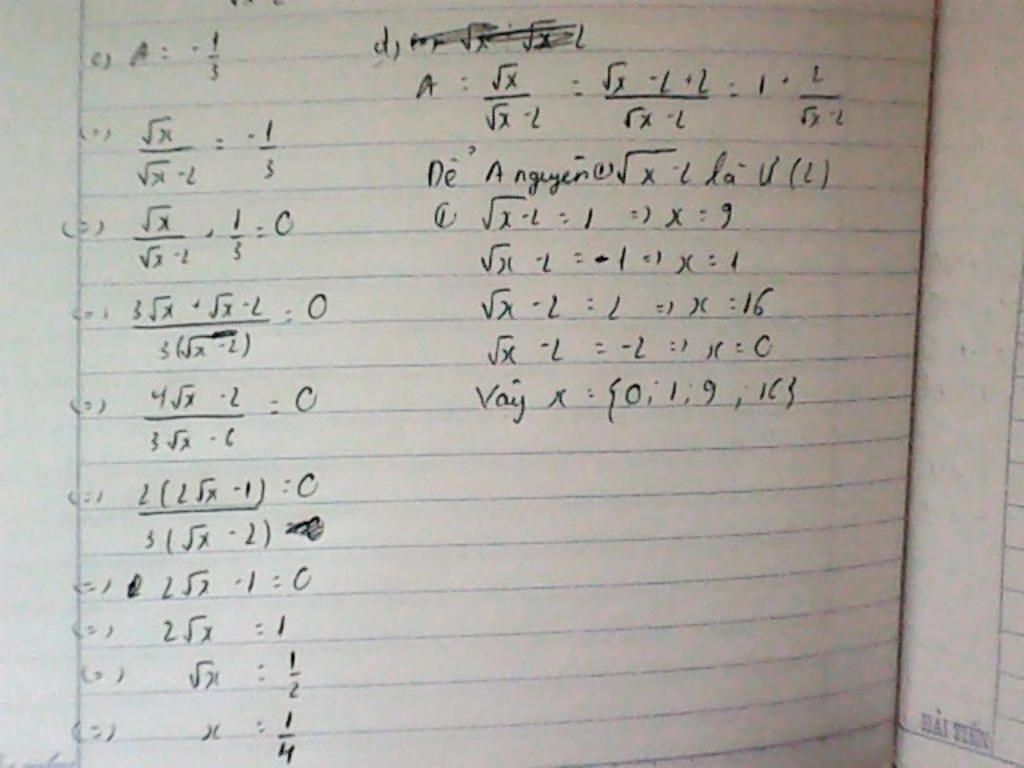 c) A = -1/3
(=) √x/(√x-2) = -1/3
(=) √x/(√x-2) + 1/3 = 0
(=) (3√x + √x-2)/(3(√x-2)) = 0
(=) (4√x - 2)/(3√x - 6) = 0
(=) 2(2√x - 1)/(3(√x - 2)) = 0
(=) 2√x - 1 = 0
(=) 2√x = 1
(=) √x = 1/2
(=) x = 1/4
d)
A = √x/(√x-2) = (√x - 2 + 2)/(√x - 2) = 1 + 2/(√x-2)
Để A nguyên √x-2 là Ư(2)
√x-2 = 1 => x = 9
√x - 2 = -1 => x = 1
√x - 2 = 2 => x = 16
√x - 2 = -2 => x = 0
Vậy x = {0; 1; 9; 16}
HẢI TIẾN